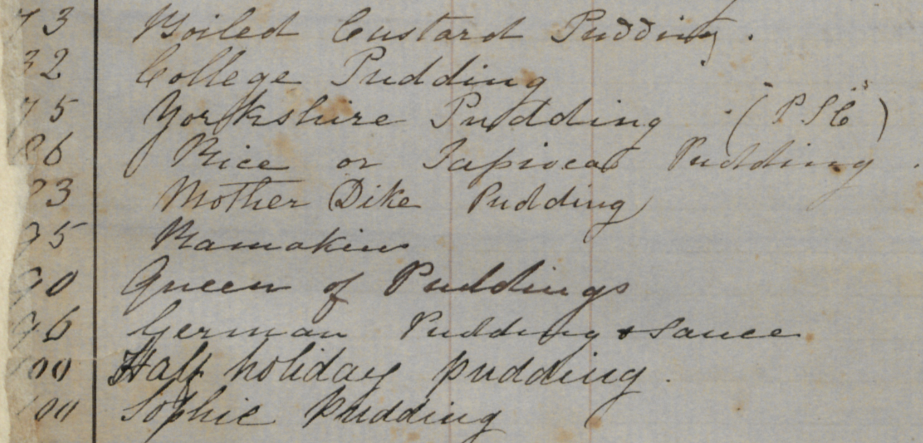 73 Boiled Custard Pudding.
32 College Pudding
75 Yorkshire Pudding (" P S C ")
86 Rice or Tapioca Pudding.
93 Mother Dike Pudding
95 Ramakins
90 Queen of Puddings
96 German Pudding & Sauce
100 Half holiday pudding.
100 Sophie Pudding